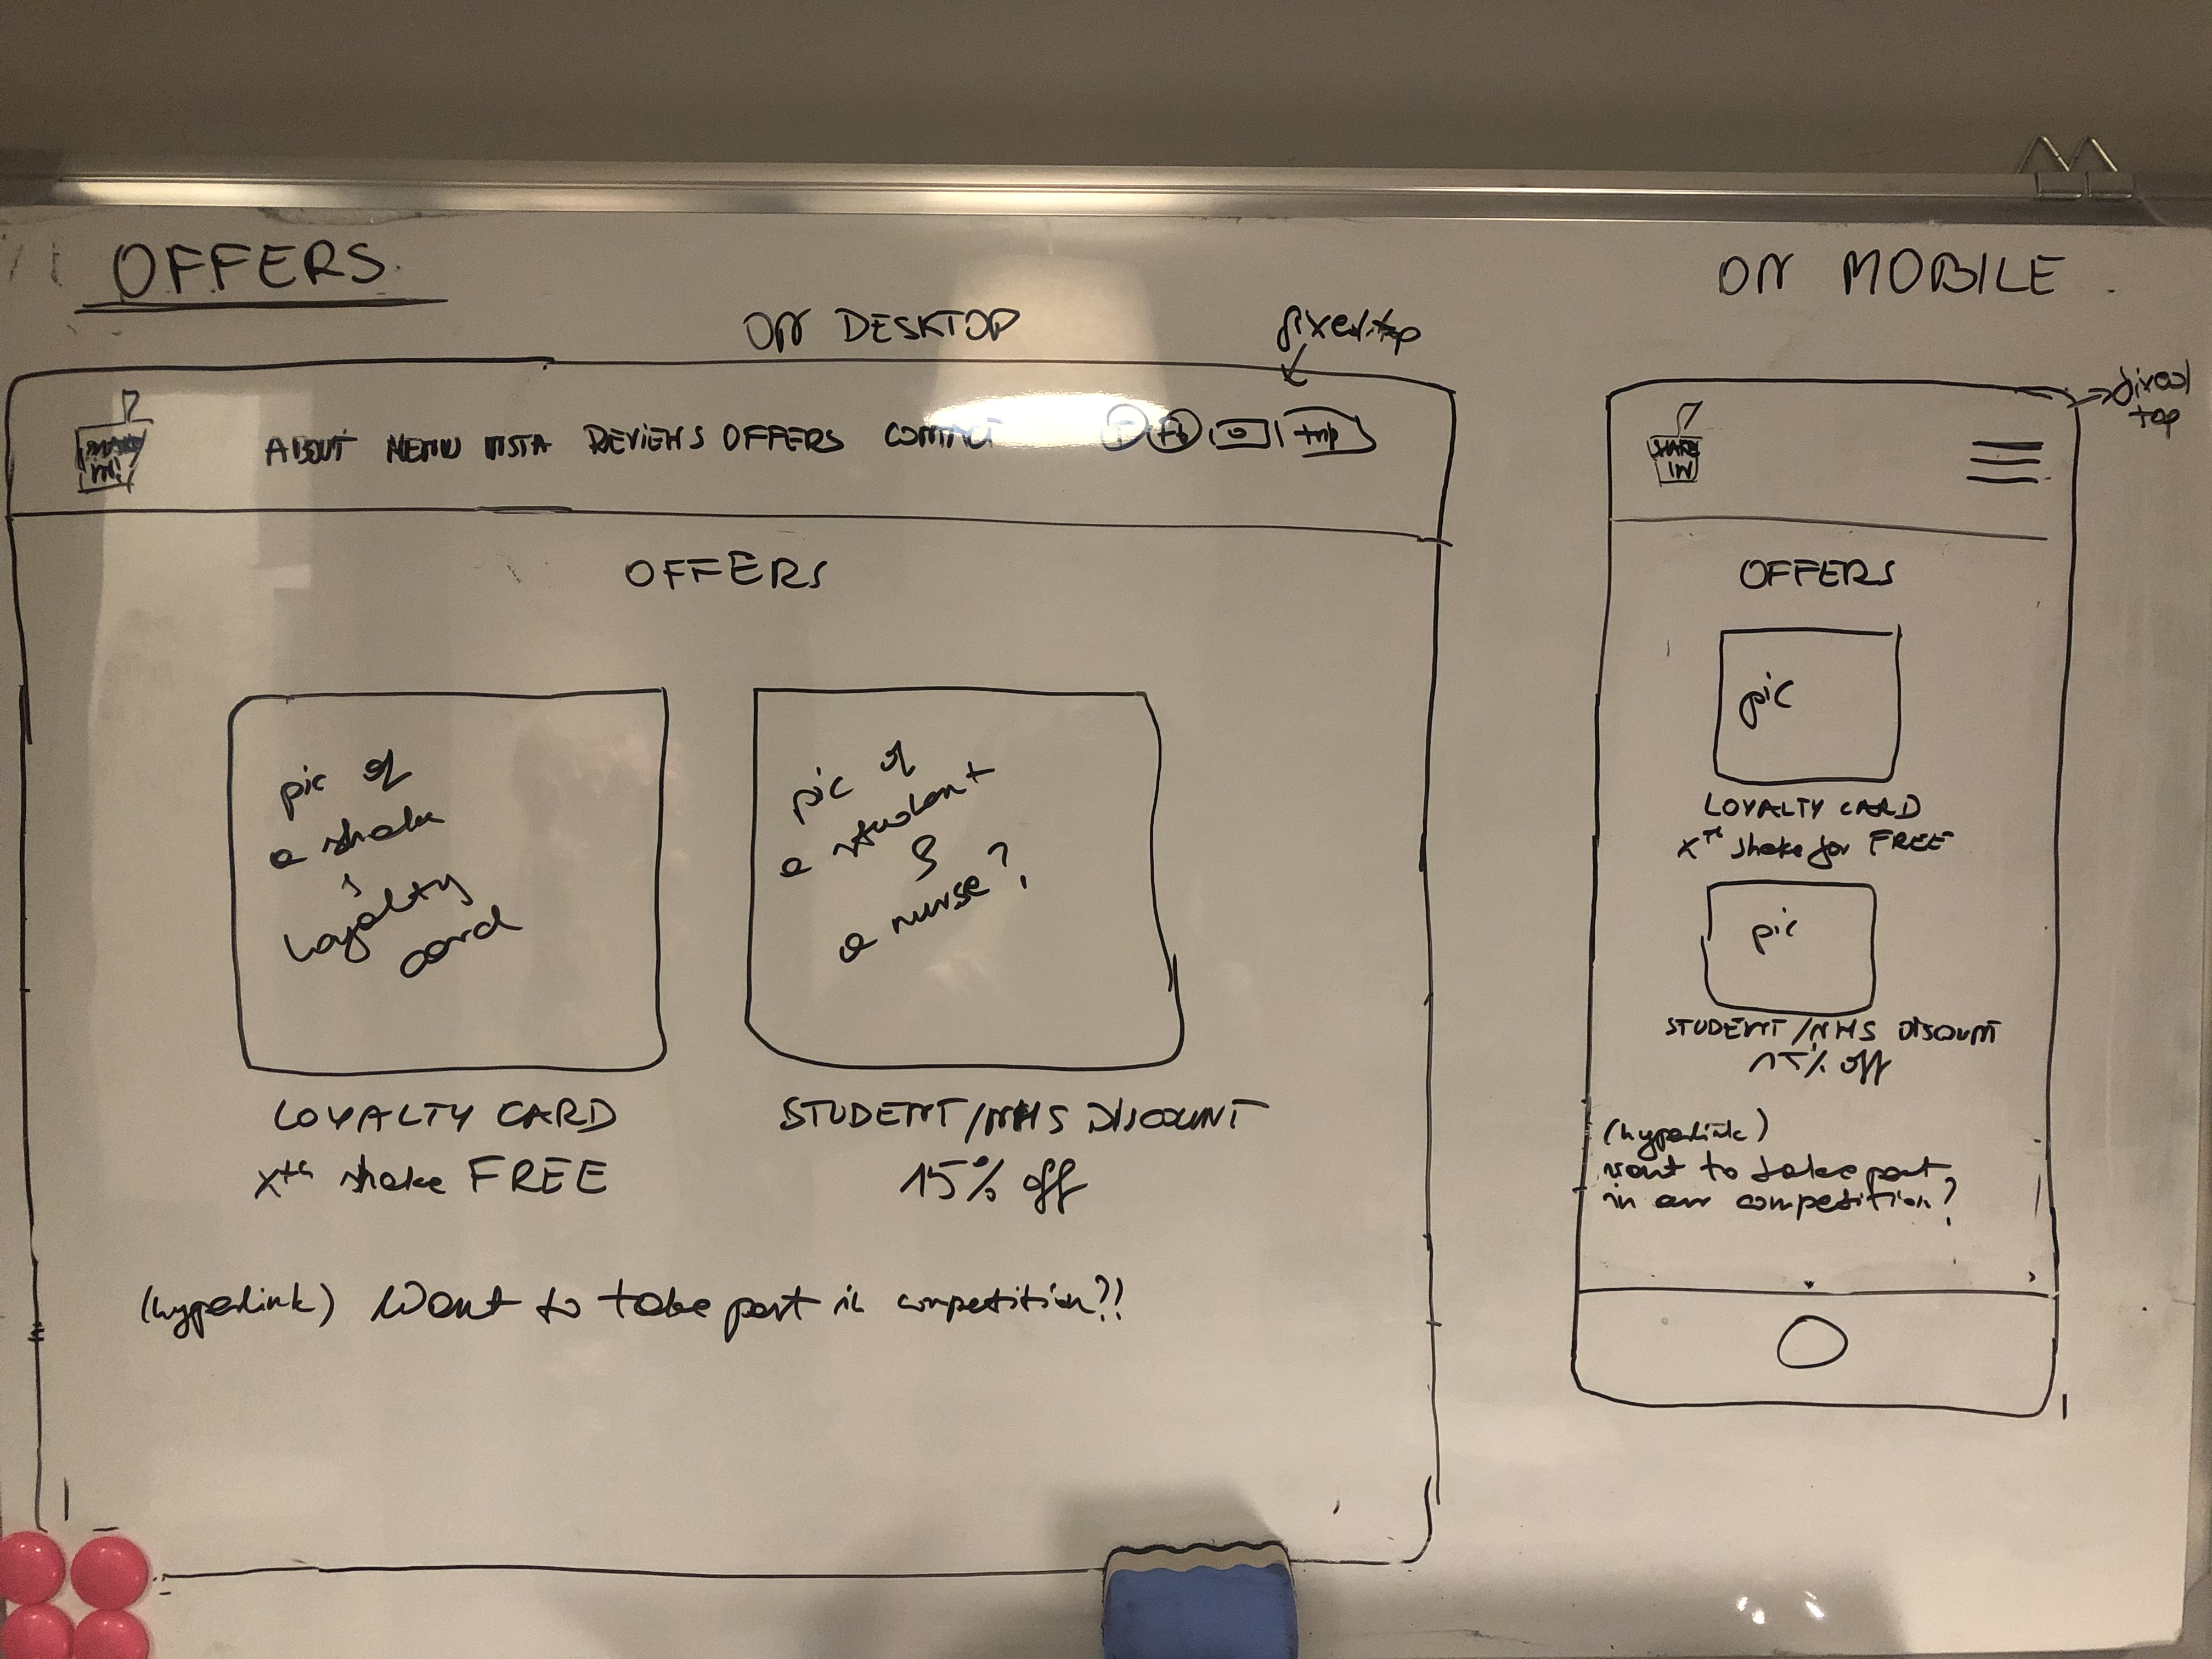 OFFERS
ON DESKTOP
fixed top
ABOUT MENU INSTA REVIEWS OFFERS CONTACT Fb trip
OFFERS
pic of
a shake
loyalty
card
pic of
a student
&
a nurse?
LOYALTY CARD
Xth shake FREE
STUDENT/NHS DISCOUNT
15% off
(hyperlink) Want to take part in competition??
ON MOBILE
fixed
top
SHAKE
IN
OFFERS
pic
LOYALTY CARD
Xth shake for FREE
pic
STUDENT/NHS DISCOUNT
15% off
(hyperlink)
want to take part
in our competition?